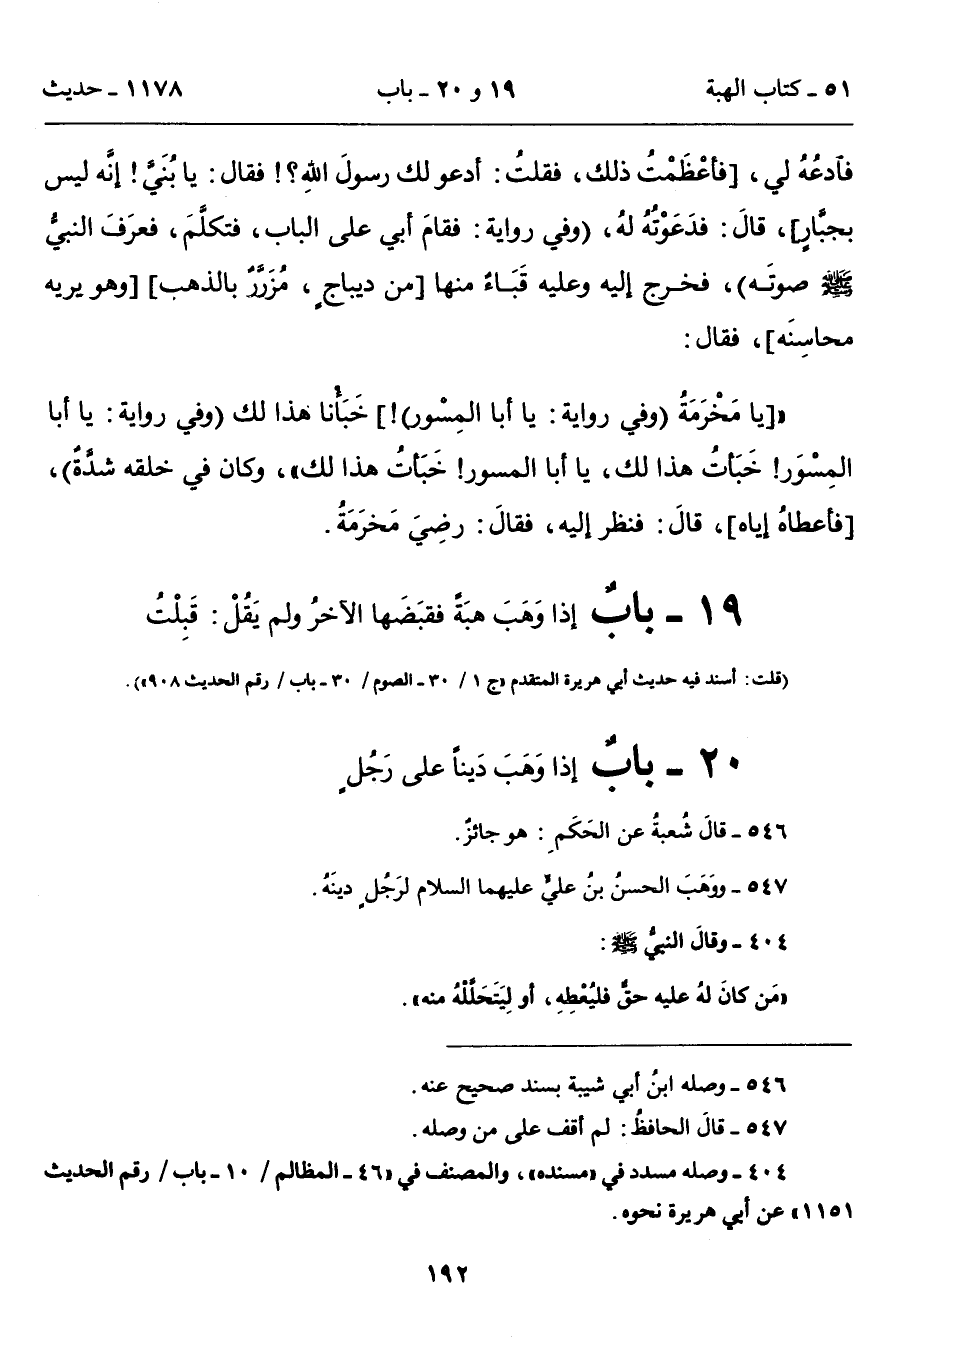 ٥١ ـ كتاب الهبة ١٩ و ٢٠ ـ باب ١١٧٨ ـ حديث
فٱدعُهُ لي، [فأعْظَمْتُ ذلك، فقلتُ: أدعو لك رسولَ اللهِ؟! فقال: يا بُنَيَّ! إنَّه ليس
بجبَّارٍ]، قالَ: فدَعَوْتُهُ لهُ، (وفي رواية: فقامَ أبي على الباب، فتكلَّمَ، فعرَفَ النبيُّ
ﷺ صوتَه)، فخرج إليه وعليه قَبَاءٌ منها [من ديباجٍ، مُزَرَّرٌ بالذهب] [وهو يريه
محاسِنَه]، فقال:
«[يا مَخْرَمَةُ (وفي رواية: يا أبا المِسْور)!] خَبَأْنا هذا لك (وفي رواية: يا أبا
المِسْوَر! خَبَأتُ هذا لك، يا أبا المسور! خَبَأتُ هذا لك»، وكان في خلقه شدَّةٌ)،
[فأعطاهُ إياه]، قالَ: فنظر إليه، فقالَ: رضِيَ مَخرَمَةُ.
١٩ ـ بابٌ إذا وَهَبَ هبَةً فقبَضَها الآخرُ ولم يَقُلْ: قَبِلْتُ
(قلت: أسند فيه حديث أبي هريرة المتقدم «ج ١ / ٣٠ ـ الصوم / ٣٠ ـ باب / رقم الحديث ٩٠٨»).
٢٠ ـ بابٌ إذا وَهَبَ دَيناً على رَجُلٍ
٥٤٦ ـ قالَ شُعبةُ عن الحَكَمِ: هو جائزٌ.
٥٤٧ ـ ووَهَبَ الحسنُ بنُ عليٍّ عليهما السلام لرَجُلٍ دينَهُ.
٤٠٤ ـ وقالَ النبيُّ ﷺ:
«مَن كانَ لهُ عليه حقٌّ فليُعْطِهِ، أو لِيَتَحَلَّلْهُ منه».
٥٤٦ ـ وصله ابنُ أبي شيبة بسند صحيح عنه.
٥٤٧ ـ قالَ الحافظُ: لم أقف على من وصله.
٤٠٤ ـ وصله مسدد في «مسنده»، والمصنف في «٤٦ ـ المظالم / ١٠ ـ باب / رقم الحديث
١١٥١» عن أبي هريرة نحوه.
١٩٢